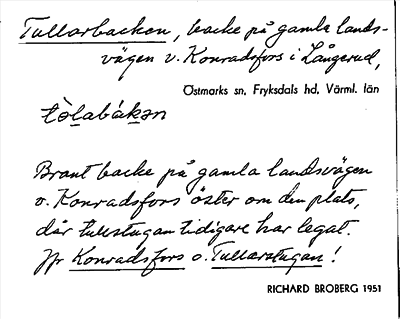 Tullarbacken, backe på gamla lands-
vägen v. Konradsfors i Långerud,
Östmarks sn, Fryksdals hd, Värml. län
tòlabákən
Brant backe på gamla landsvägen
v. Konradsfors öster om den plats,
där tullstugan tidigare har legat.
Jfr Konradsfors o. Tullarstugan!
RICHARD BROBERG 1951